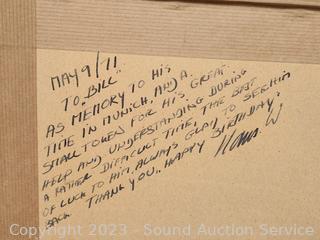 MAY 9/71
TO "BILL"
AS MEMORY TO HIS
TIME IN MUNICH, AND A.
SMALL TOKEN FOR HIS GREAT
HELP AND UNDERSTANDING DURING
A RATHER DIFFICULT TIME, THE BEST
OF LUCK TO HIM, ALWAYS GLAD TO SEE HIM
BACK THANK YOU.. HAPPY BIRTHDAY,
Copyright 2023 - Sound Auction Service